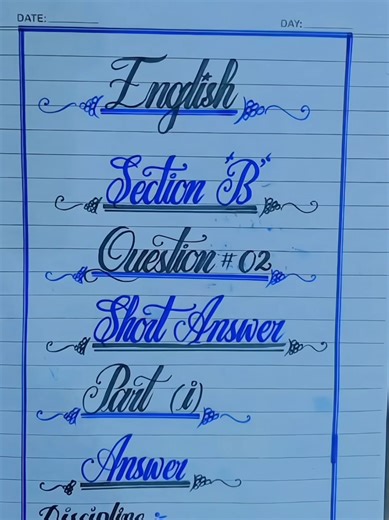 DATE: DAY:
English
Section "B"
Question # 02
Short Answer
Part (i)
Answer
Discipline :-